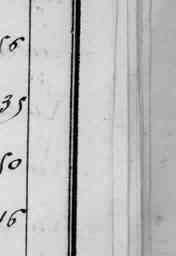 56
35
50
16